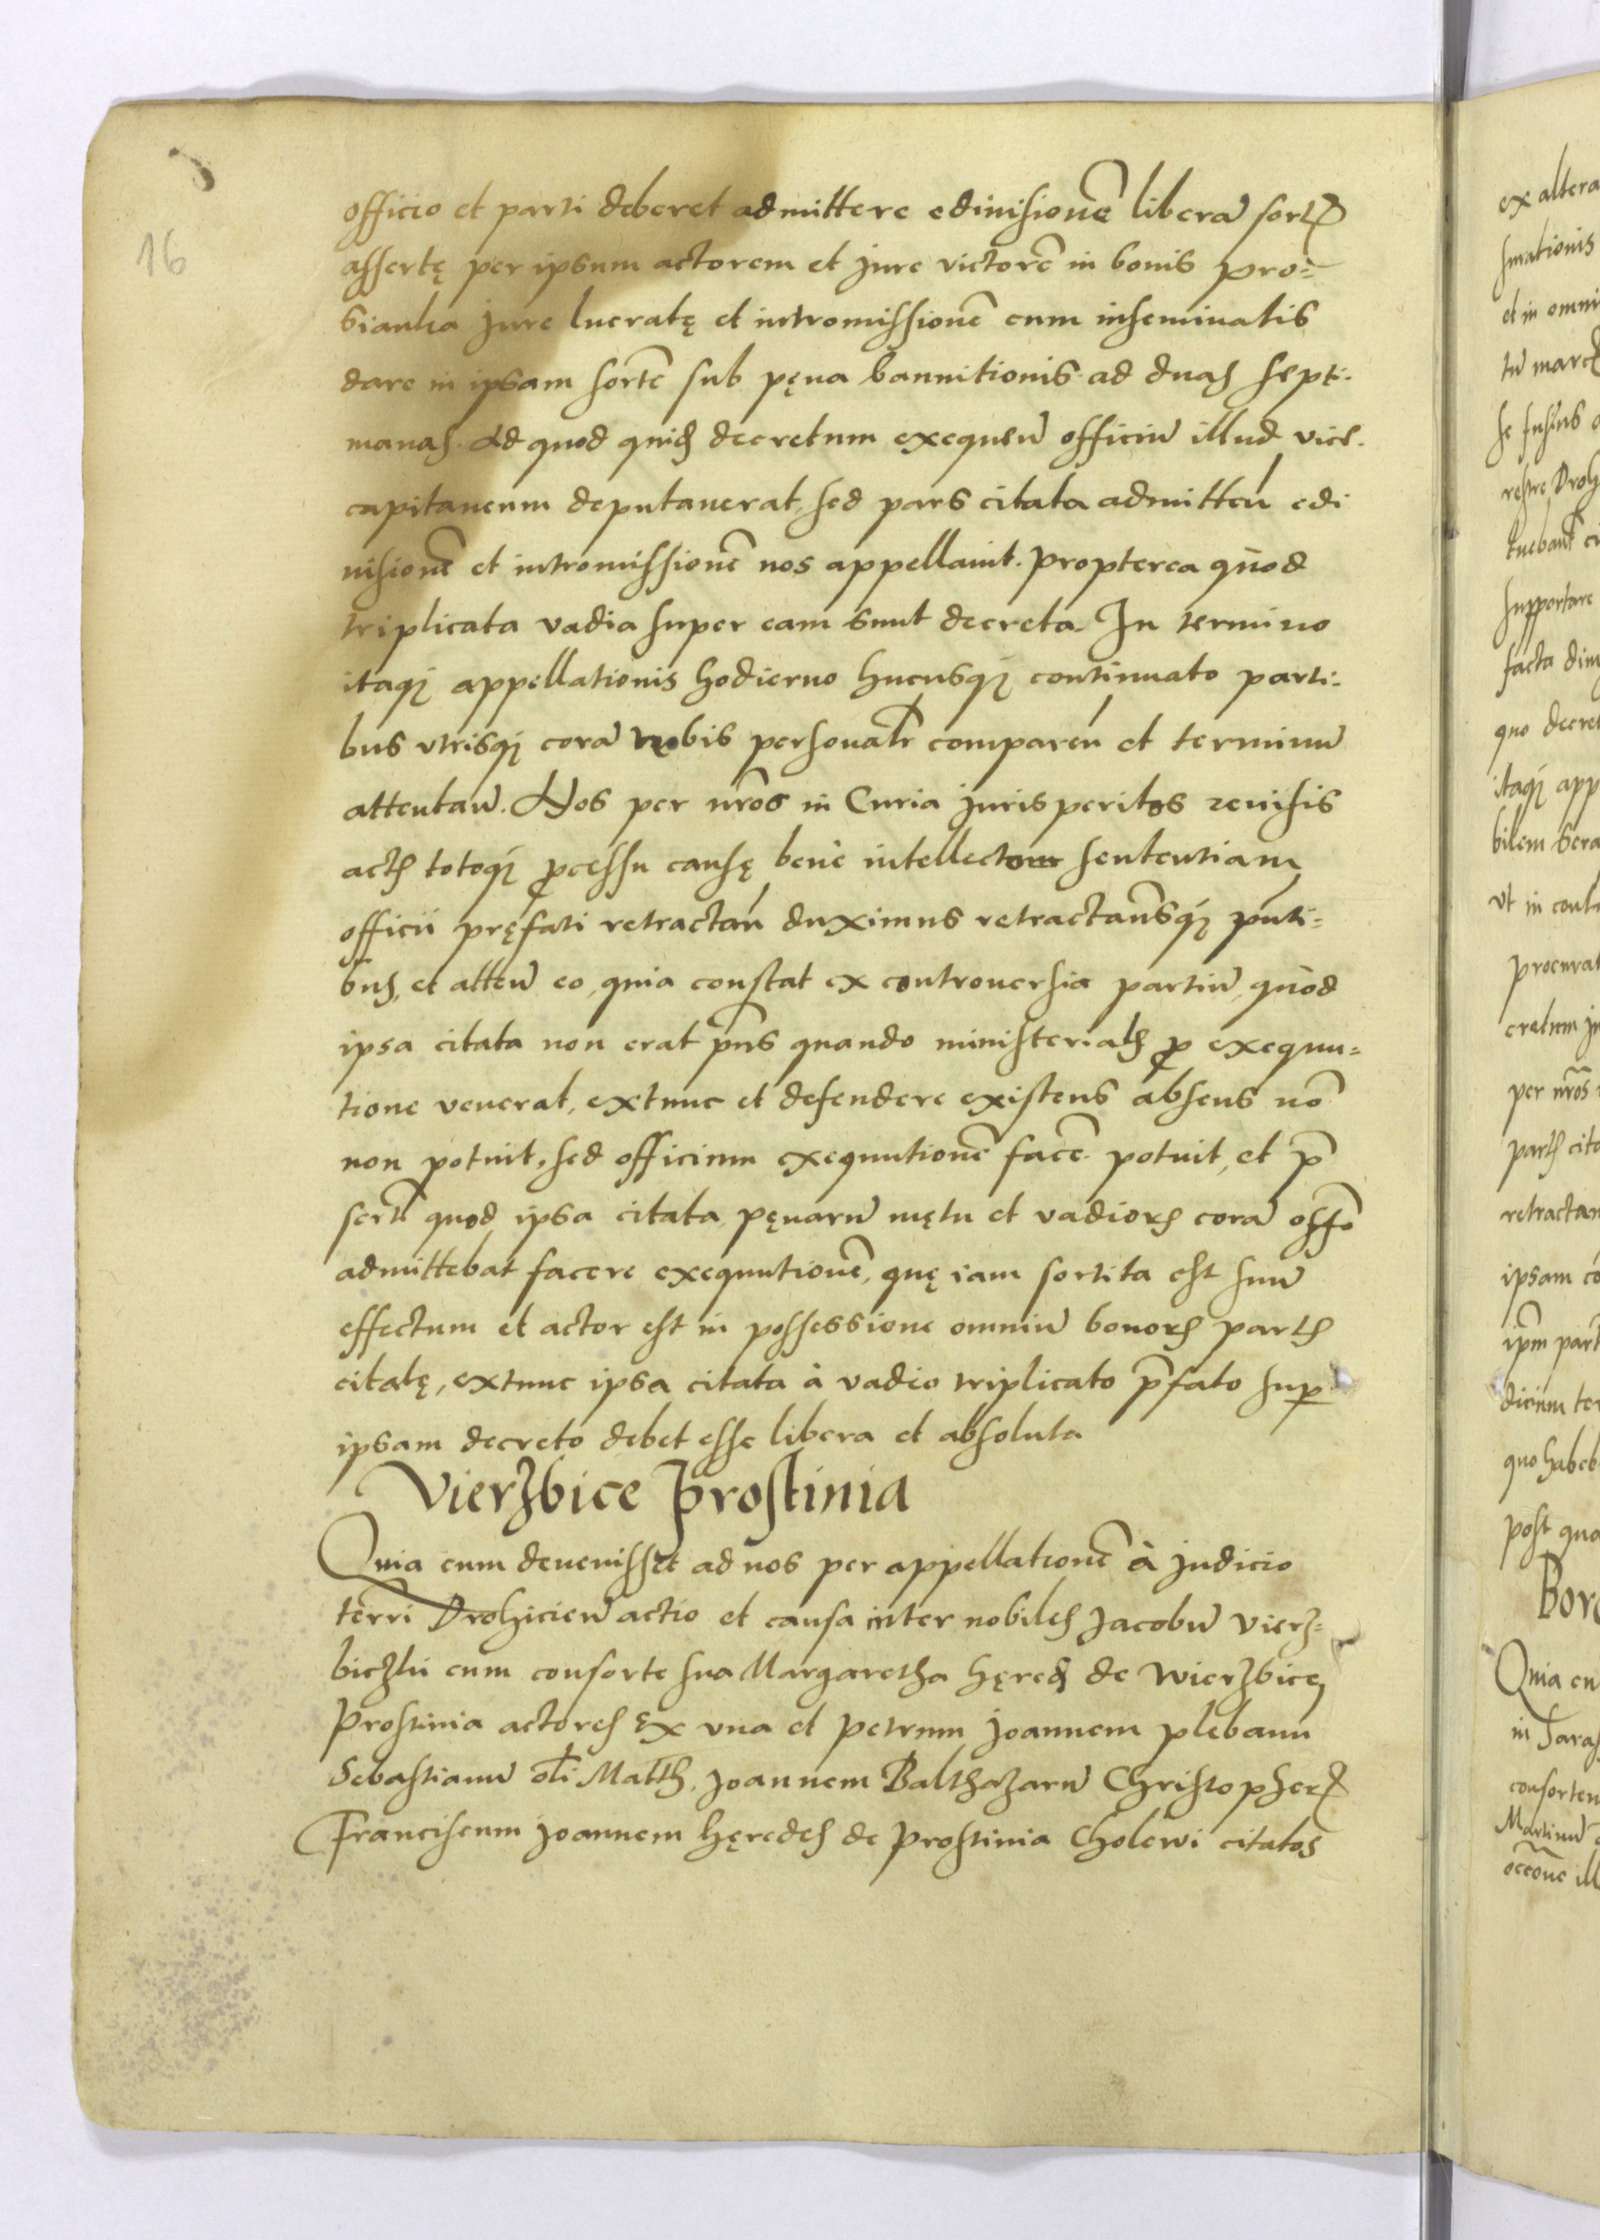 16
officio et parti deberet admittere edivisionē liberā sortꝭ
assertę per ipsum actorem et jure victorē in bonis pro=
sianka jure lucratę et intromissionē cum inseminatis
dare in ipsam sortē sub pęna bannitionis ad duas septi-
manas. Ad quod quidꝭ decretum exequeñ officiū illud vice-
capitaneum deputaverat, sed pars citata admitteń edi
visionē et intromissionē nos appellauit. propterea quòd
triplicata vadia super eam sunt decreta. In termino
itaqꝫ appellationis hodierno hucusqꝫ continuato parti-
bus vtrisqꝫ corā nobis personalr̄ compareń et terminū
attentañ. Nos per nr̄os in Curia jurisperitos revisis
actꝭ totoqꝫ ꝓcessu causę benè intellecto sententiam
officii pręfati retractań duximus retractamꝰqꝫ pn̄ti=
bus, et attēn eo, quia constat ex controuersia partiū, quòd
ipsa citata non erat pn̄s quando ministerialꝭ ꝓ exequu=
tione venerat, extunc et defendere existens absens nō
non potuit, sed officium exequutionē facē potuit, et p̄
sertī quod ipsa citata pęnarū mętu et vadiorꝫ corā offō
admittebat facere exequutionē, quę iam sortita est suū
effectum et actor est in possessione omniū bonorꝫ partꝭ
citatę, extunc ipsa citata à vadio triplicato p̄fato sup̱
ipsam decreto debet esse libera et absoluta
Vierzbice Prostinia
Quia cum devenisset ad nos per appellationē à judicio
terrī Drohicień actio et causa inter nobiles Jacobū Vierz=
biczki cum consorte sua Margaretha hęredꝭ de Wierzbice
Prostinia actores Ex vna et petrum joannem plebanū
Sebastianū olī Matth. joannem Balthazarū Christopherꝭ
Franciscum joannem hęredes de Prostinia Cholewi citatos
ex altera
et in omni
facta
quo decret
itaqꝫ app
vt in
procurat
cretum
per nr̄os
partꝭ cita
retractan
ipsam
dicium ter
quo habeb
post qua
Quia
in
consortem
Martinū